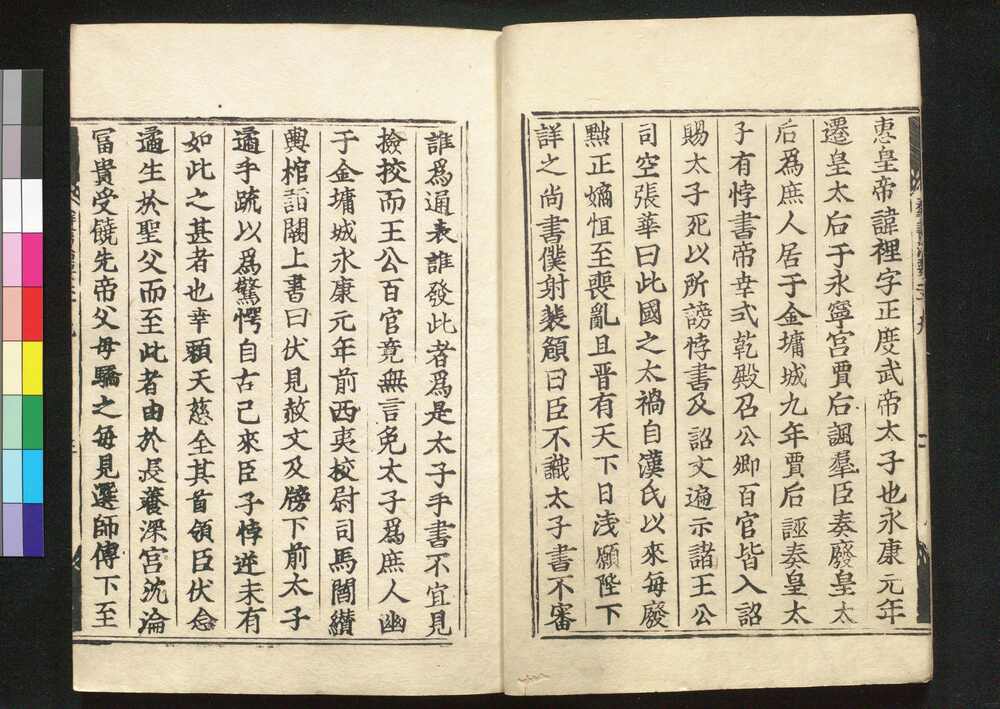 惠皇帝諱裡字正度武帝太子也永康元年
遷皇太后于永寧宮賈后諷羣臣奏廢皇太
后爲庶人居于金墉城九年賈后誣奏皇太
子有悖書帝幸式乾殿召公卿百官皆入詔
賜太子死以所謗悖書及詔文遍示諸王公
司空張華曰此國之太禍自漢氏以來每廢
黜正嫡恒至喪亂且晋有天下日浅願陛下
詳之尚書僕射裴頠曰臣不識太子書不審
誰爲通表誰發此者爲是太子手書不宜見
撿挍而王公百官竟無言免太子爲庶人幽
于金墉城永康元年前西夷挍尉司馬閻纘
輿棺詣闕上書曰伏見赦文及牓下前太子
遹手疏以爲驚愕自古已來臣子悖逆未有
如此之甚者也幸頼天慈全其首領臣伏念
遹生於聖父而至此者由於長養深宮沈淪
冨貴受饒先帝父母驕之每見選師傅下至